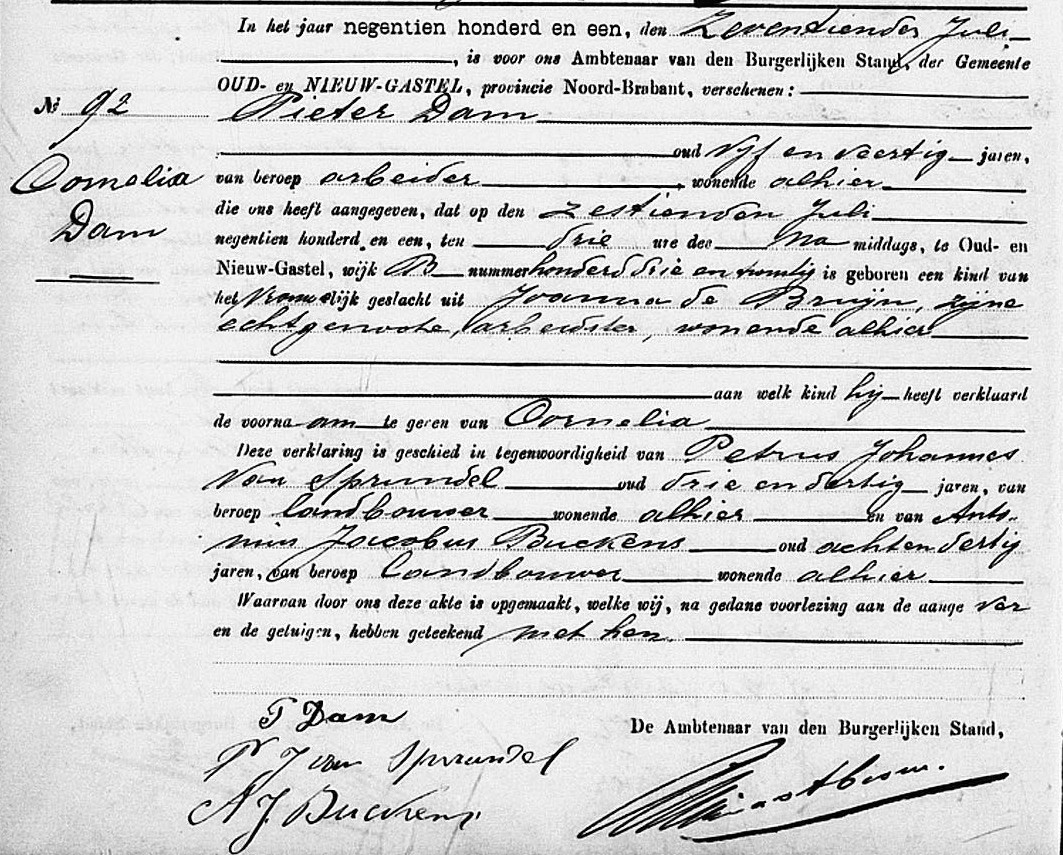 In het jaar negentien honderd en een, den Zeventienden Juli
, is voor ons Ambtenaar van den Burgerlijken Stand, der Gemeente
OUD- en NIEUW-GASTEL, provincie Noord-Brabant, verschenen:
No 92
Pieter Dam
oud Vijf en veertig jaren,
Cornelia
Dam
van beroep arbeider, wonende alhier
die ons heeft aangegeven, dat op den Zestienden Juli
negentien honderd en een, ten drie ure des Na middags, te Oud- en
Nieuw-Gastel, wijk B nummer honderd drie en twintig is geboren een kind van
het Vrouwelijk geslacht uit Joanna de Bruijn, zijne
echtgenoote, arbeidster, wonende alhier
aan welk kind hij heeft verklaard
de voorna am te geven van Cornelia
Deze verklaring is geschied in tegenwoordigheid van Petrus Johannes
Van Sprundel oud drie en dertig jaren, van
beroep landbouwer wonende alhier en van Anto-
nius Jacobus Buckens oud acht en dertig
jaren, van beroep landbouwer wonende alhier
Waarvan door ons deze akte is opgemaakt, welke wij, na gedane voorlezing aan de aange ver
en de getuigen, hebben geteekend met hen.
P Dam
P J van Sprundel
A J Buckens
De Ambtenaar van den Burgerlijken Stand,